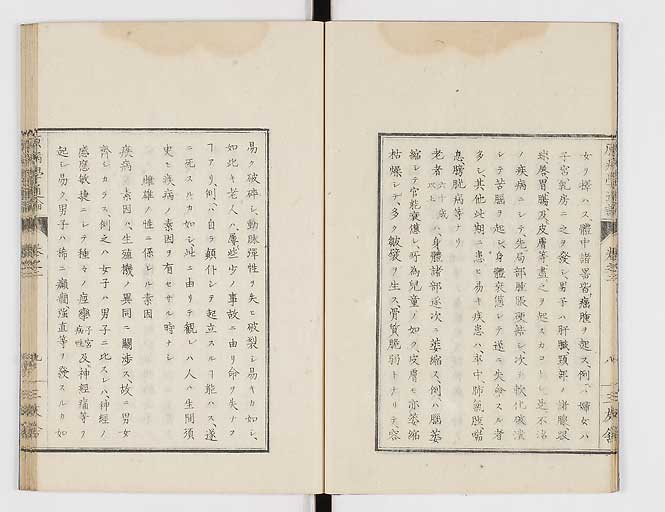 女ヲ擇ハス、體中諸器皆癌腫ヲ起ス、例ハ婦女ハ
子宮乳房ニ之ヲ發シ、男子ハ肝臟、頸部ノ諸腺、眼
球、唇胃腸及皮膚等盡ク之ヲ起スカコトシ、
ノ疾病ニシテ、先局部腫脹硬結シ次ニ軟化破潰
シテ苦惱ヲ起シ、身體衰憊シテ遂ニ失命スル者
多シ、其他此期ニ患ヒ易キ疾患ハ卒中、肺氣腫、喘
息、膀胱病等ナリ
老者 六十歲以上 ハ、身體諸部逐次ニ萎縮ス、例ハ腦萎
縮シテ官能衰憊シ、所爲兒童ノ如ク、皮膚モ亦萎縮
枯燥シテ、多ク皺襞ヲ生ス、骨質脆弱トナリテ容
易ク破碎シ、動脈彈性ヲ失ヒ破裂シ易キカ如シ、
如此キ老人ハ屢些少ノ事故ニ由リ命ヲ失ナフ
ヿアリ、例ハ自ラ顛仆シテ起立スルヿ能ハス、遂
ニ死スルカ如シ、此ニ由リテ觀レハ人ハ生間須
臾モ疾病ノ素因ヲ有セサル時ナシ
雌雄ノ性ニ係レル素因
疾病ノ素因ハ、生殖機ノ異同ニ關渉ス、故ニ男女
齊シカラス、例之ハ女子ハ男子ニ比スレハ、神經ノ
感應敏捷ニシテ種々ノ痙攣 子宮病性 及神經痛等ヲ
起シ易ク、男子ハ稀ニ癲癇強直等ヲ發スルカ如